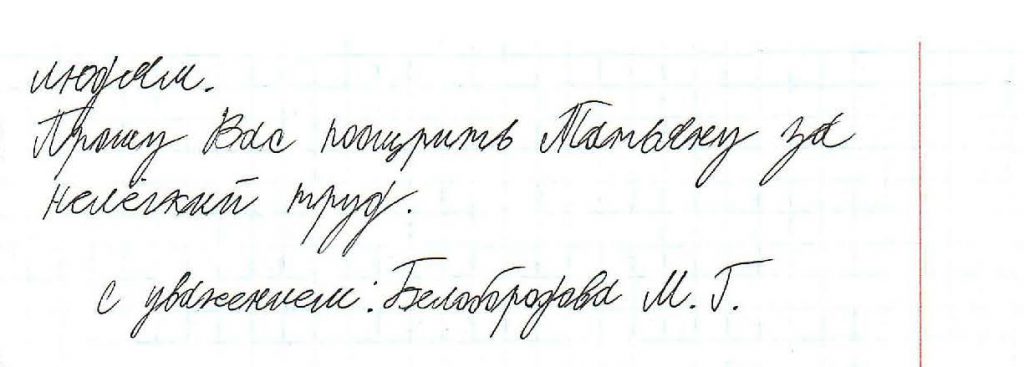 людям.
Прошу Вас поощрить Татьяну за
нелёгкий труд.
с уважением: Белобородова М. Г.